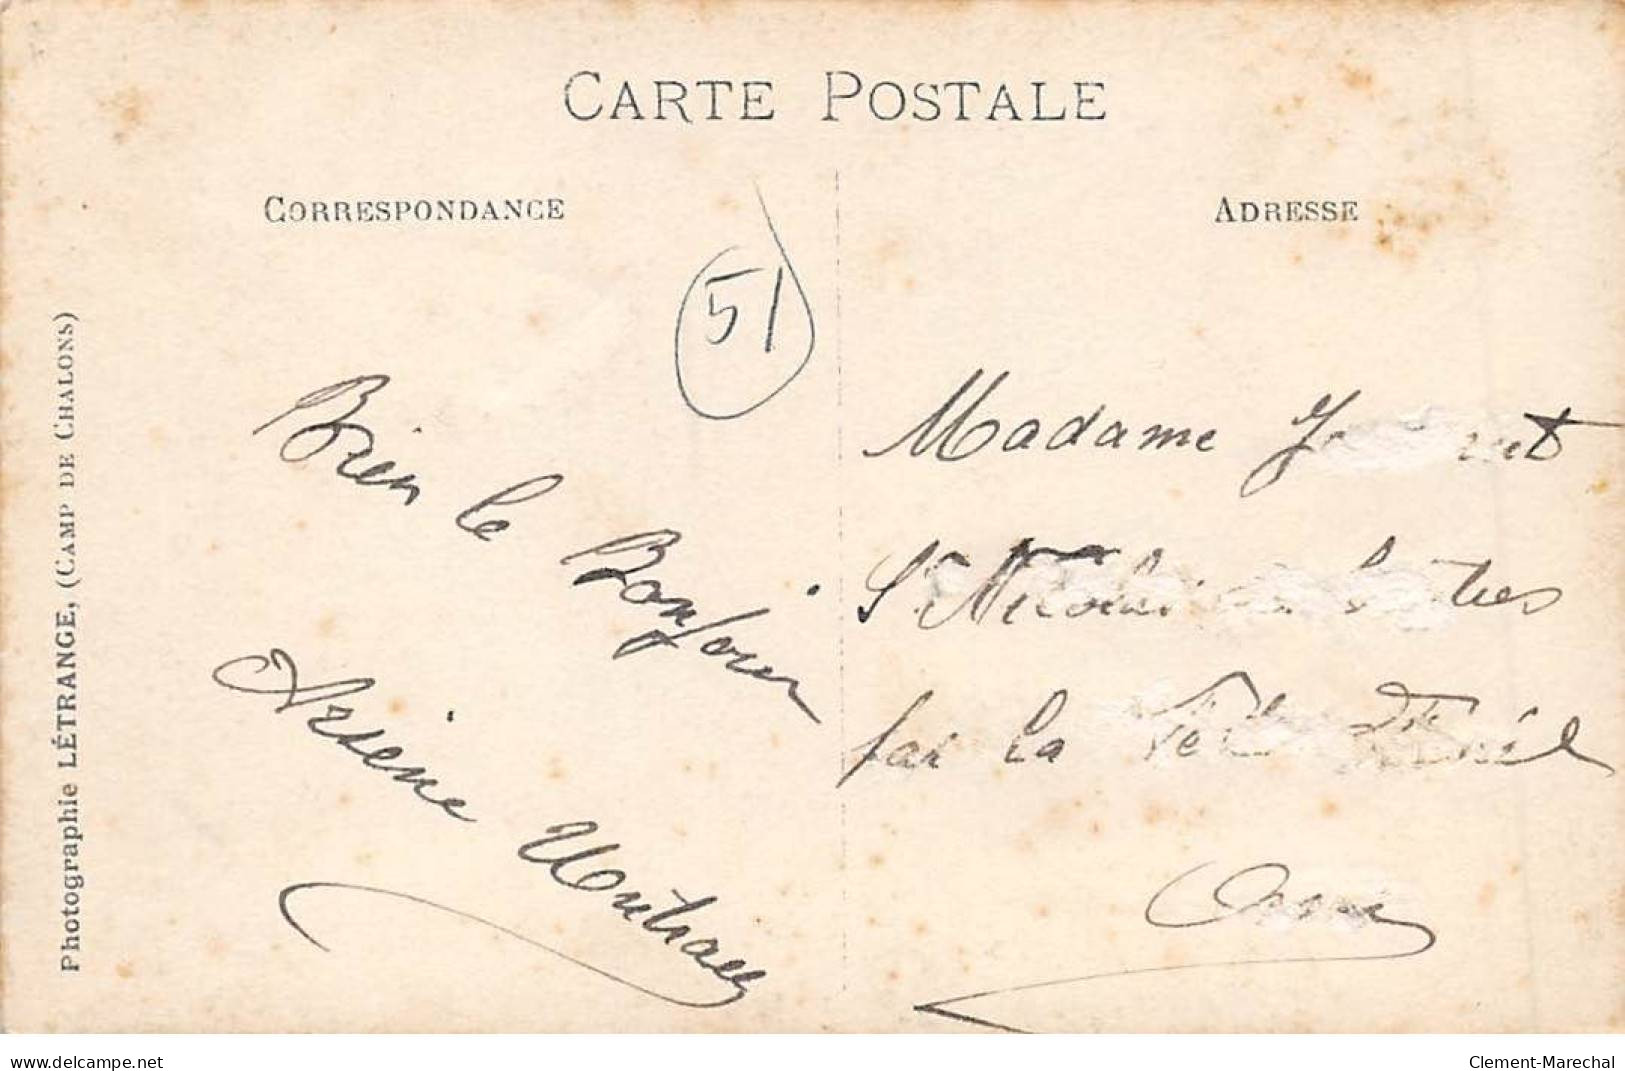 CARTE POSTALE
CORRESPONDANCE
ADRESSE
51
Photographie LÉTRANGE, (CAMP DE CHALONS)
Bien le Bonjour
Arsène
Madame
St Nicolas
par la
Orne
www.delcampe.net
Clement-Marechal